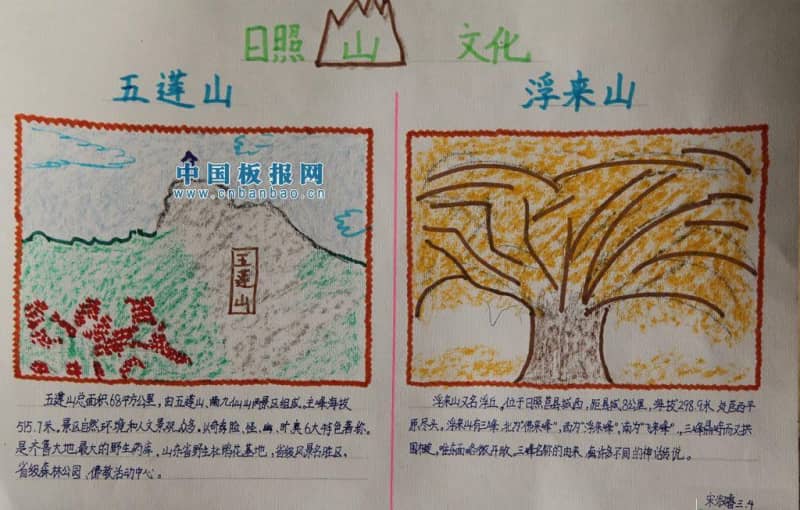 日照 山 文化
五莲山
浮来山
中国板报网
www.cnbanbao.cn
五莲山
五莲山总面积68平方公里，由五莲山、九仙山两景区组成。主峰海拔
515.7米。景区自然环境和人文景观众多。以奇秀险、怪、幽、旷奥6大特色著称。
是齐鲁大地最大的野生药库，山东省野生杜鹃花基地，省级风景名胜区，
省级森林公园、佛教活动中心。
浮来山又名浮丘。位于日照莒县城西，距县城8公里，海拔298.9米，处莒西平
原尽头。浮来山有三峰，北为“佛来峰”，西为“浮来峰”，南为“飞来峰”，三峰鼎峙而又拱
围相，唯东面略微开放。三峰名称的由来，有许多不同的神话传说。
三.4